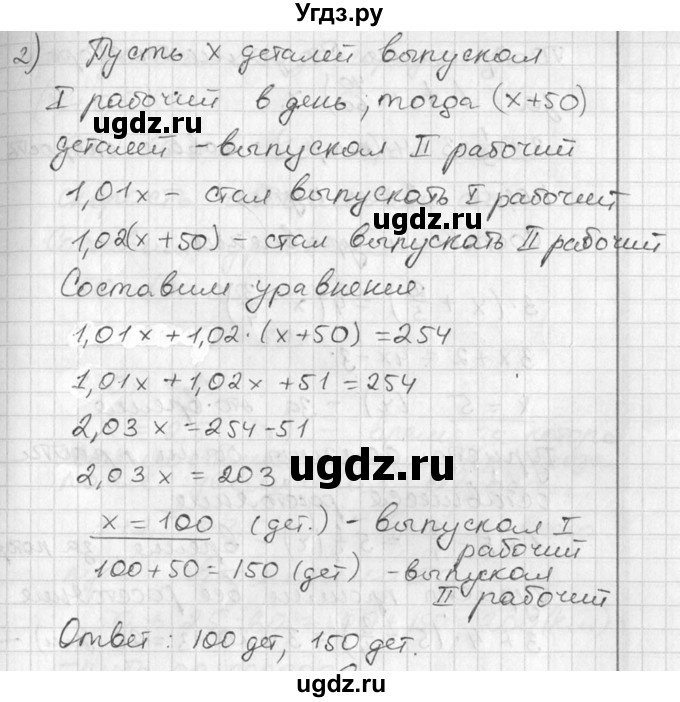 Угдз.ру
2) Пусть x деталей выпускал
I рабочий в день, тогда (x+50)
ugdz.ru
деталей - выпускал II рабочий
1,01x - стал выпускать I рабочий
ugdz.ru
1,02(x+50) - стал выпускать II рабочий
Составим уравнение:
1,01x + 1,02·(x+50) = 254
1,01x + 1,02x + 51 = 254
2,03x = 254-51
ugdz.ru
2,03x = 203
x = 100 (дет.) - выпускал I
рабочий
100+50=150 (дет) - выпускал
II рабочий
ugdz.ru
Ответ: 100 дет, 150 дет.
ugdz.ru